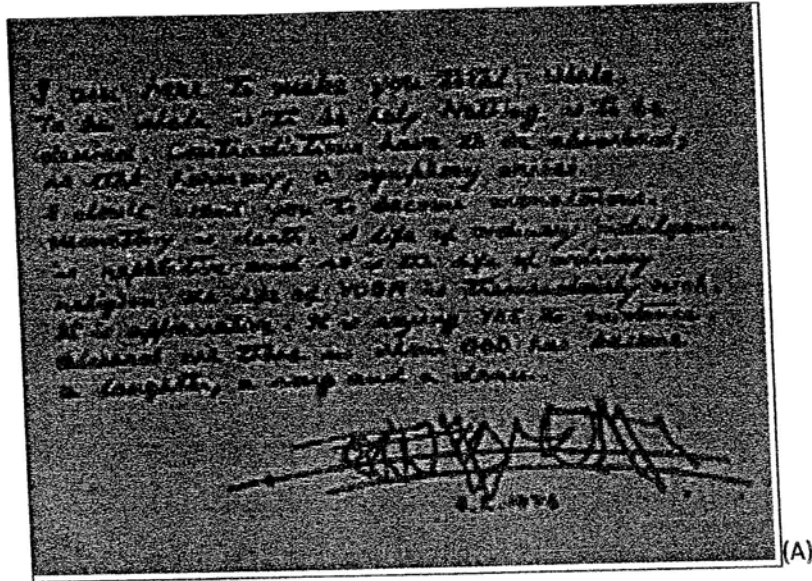 I am here to make you total, whole.
To be whole is to be holy. Nothing is to be
denied. Contradictions have to be absorbed,
so that harmony, a symphony arises.
I don't want you to become monotonous.
monotony is death. A life of ordinary indulgence
is repetitive and so is the life of ordinary
religion. The life of YOGA is tremendously rich.
It is affirmative. It is saying YES to existence.
a laughter, a song and a dance.
(A)